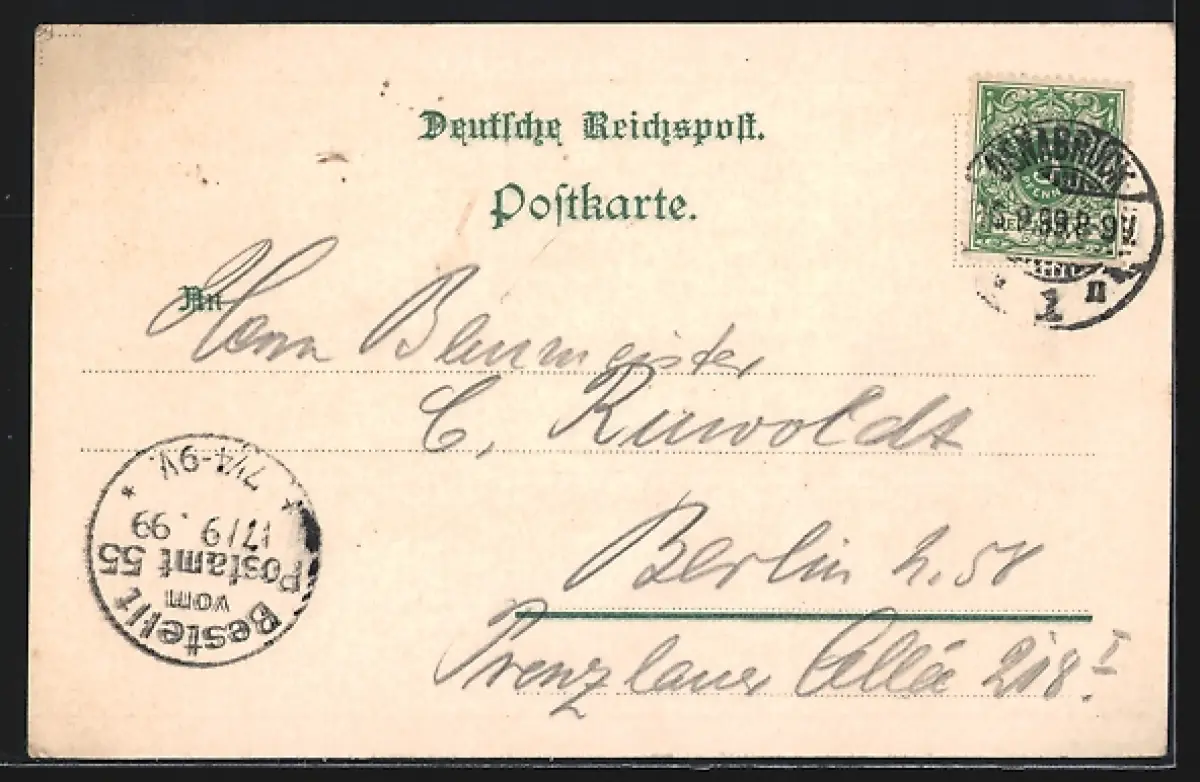 Deutsche Reichspost.
Postkarte.
An
Herrn Baumeister
C. Ruwoldt
Berlin N. 58
Prenzlauer Allée 218 I
OSNABRÜCK
.9.99.8-9V.
1 n
Bestellt
vom
Postamt 55
17/9.99
7¼-9V.